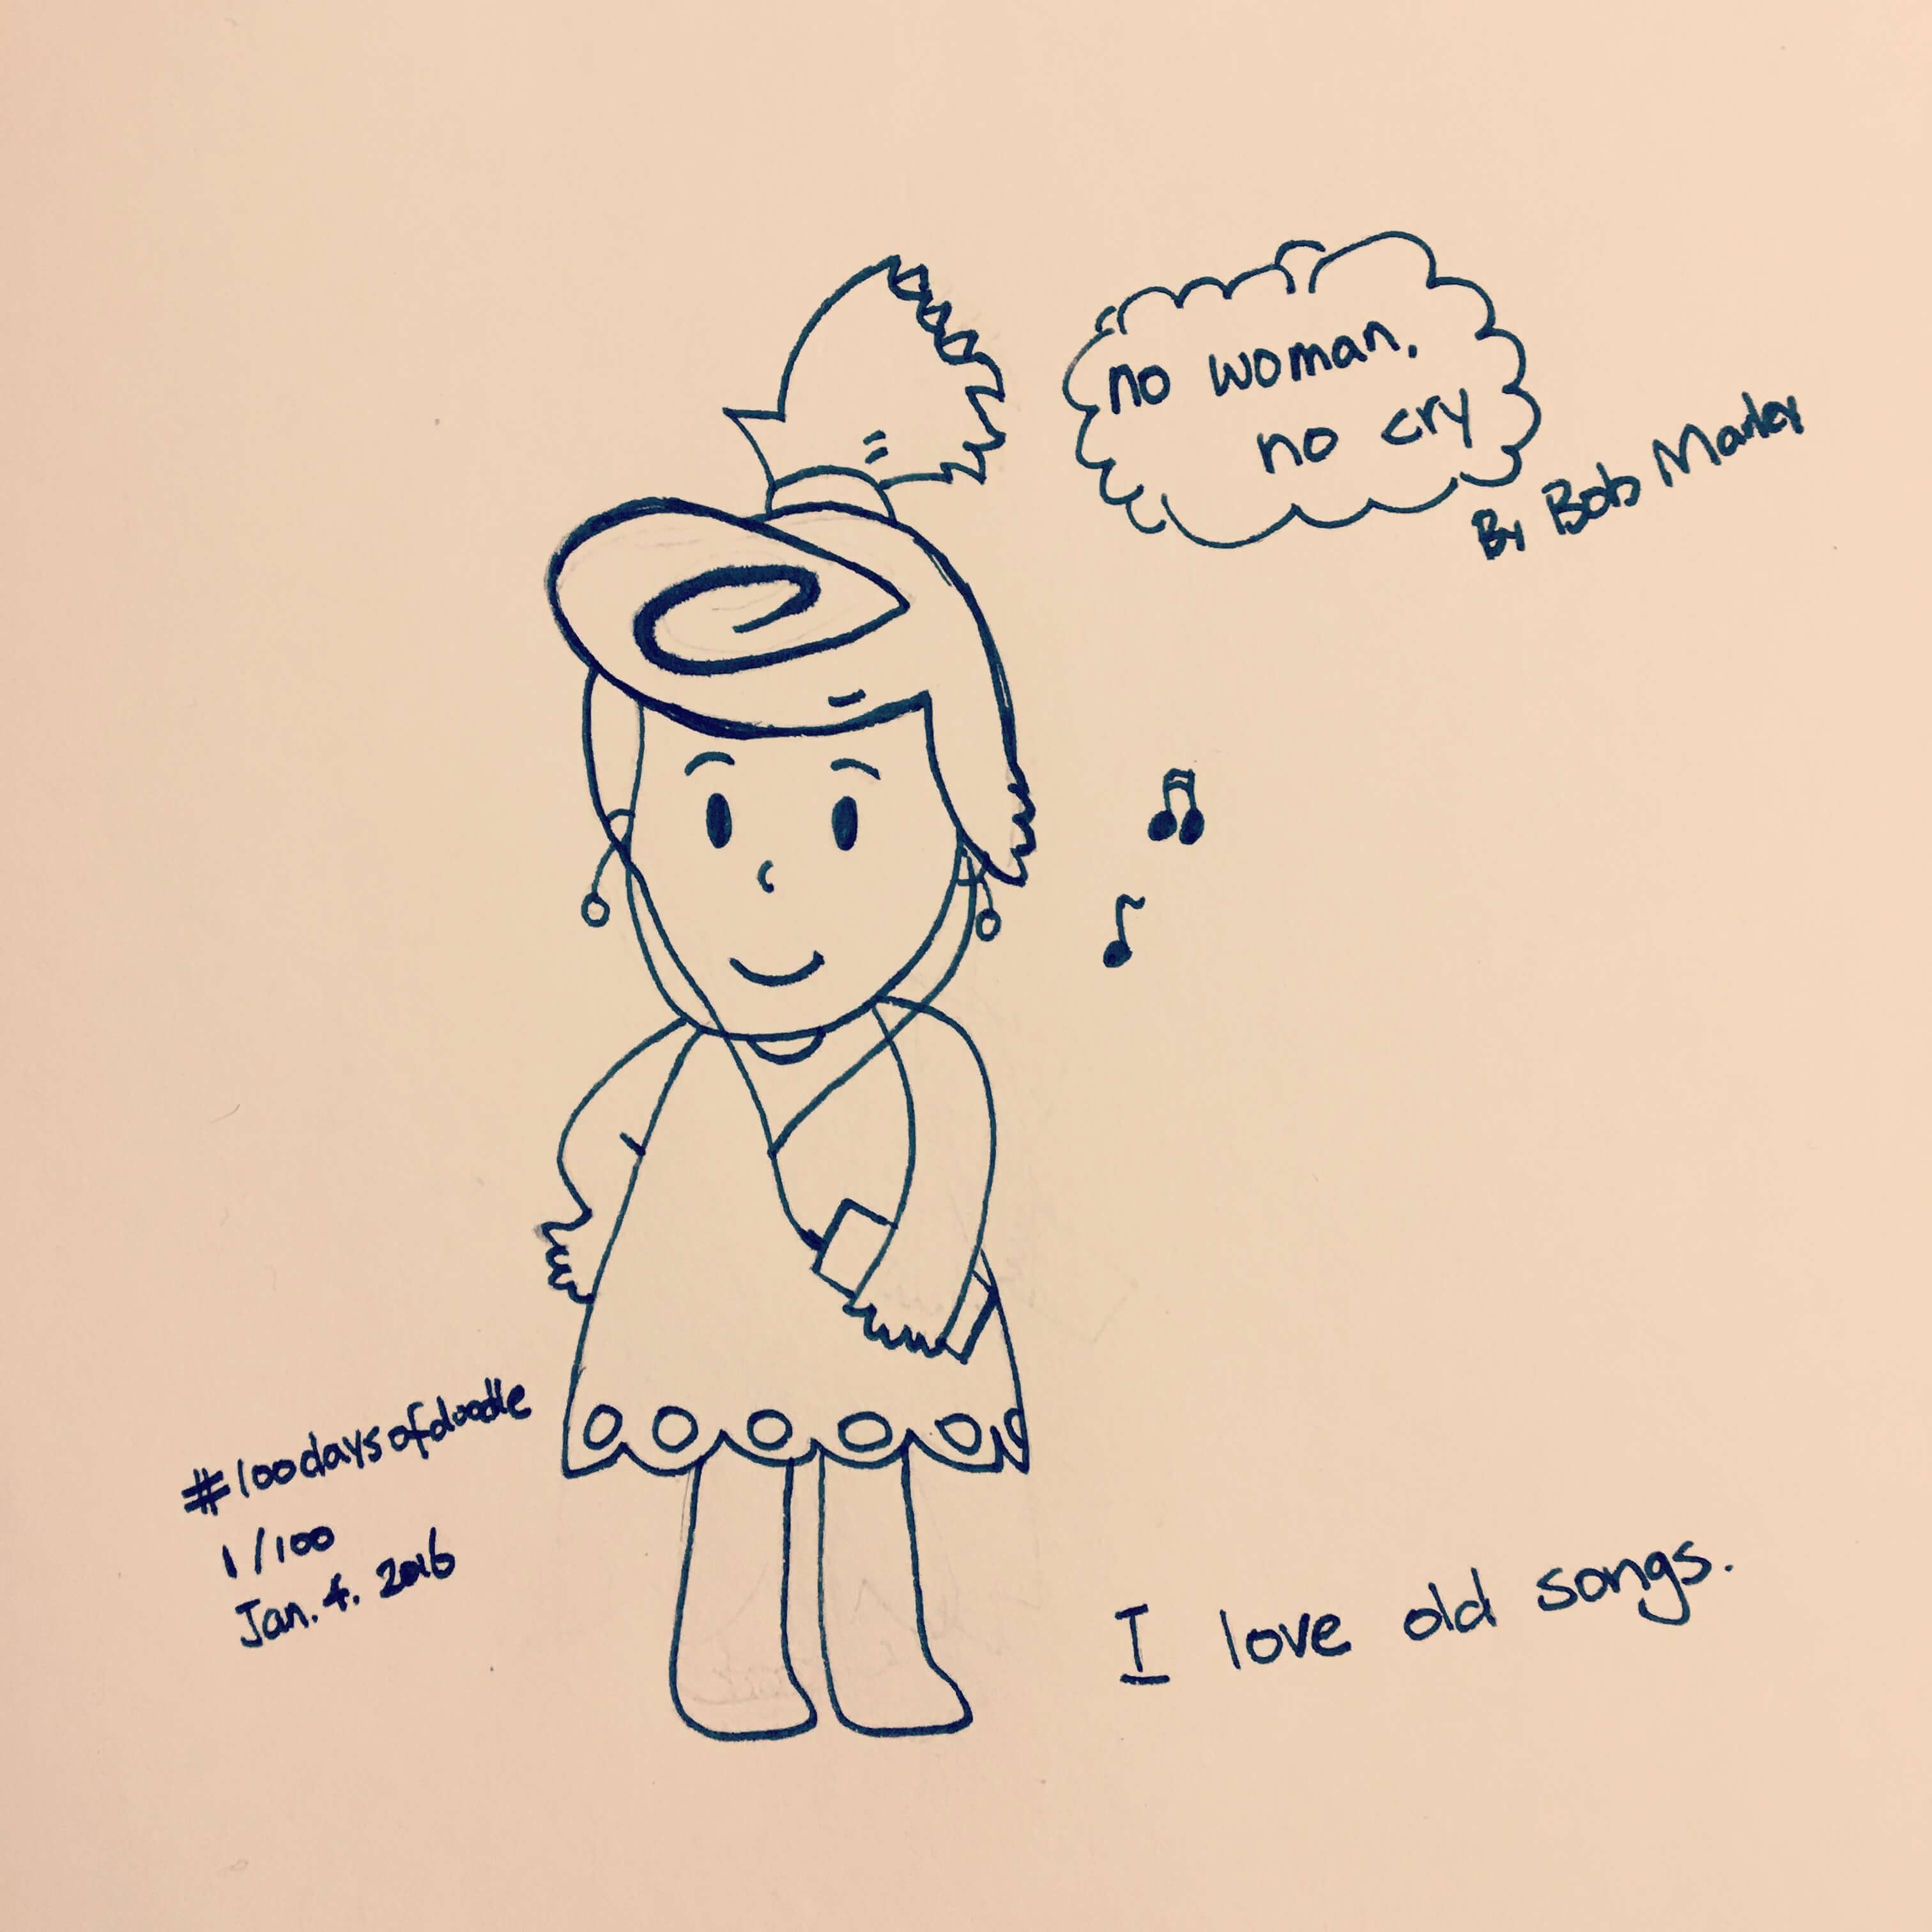 no woman.
no cry
By Bob Marley
#100daysofdoodle
1/100
Jan. 4. 2016
I love old songs.